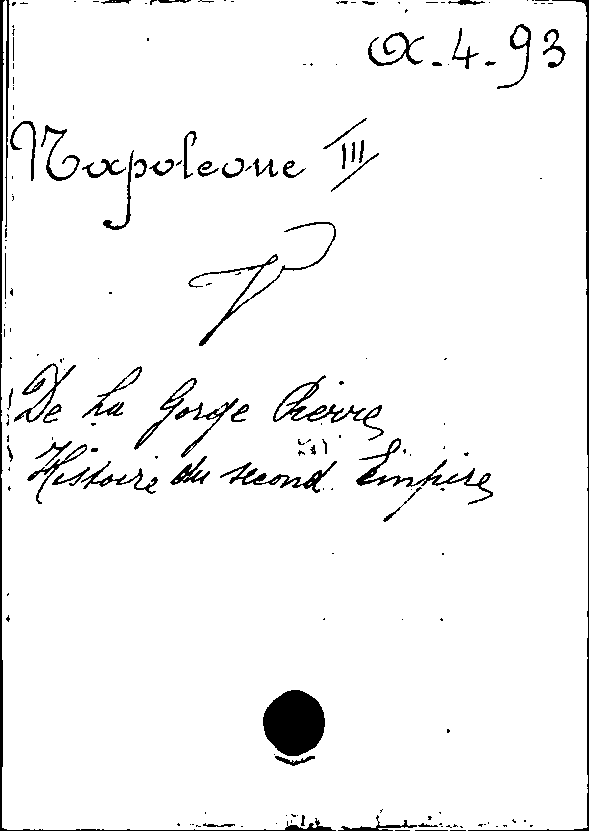 α-4-93
Napoleone III
V
De La Gorge Pierre
Histoire du second Empire